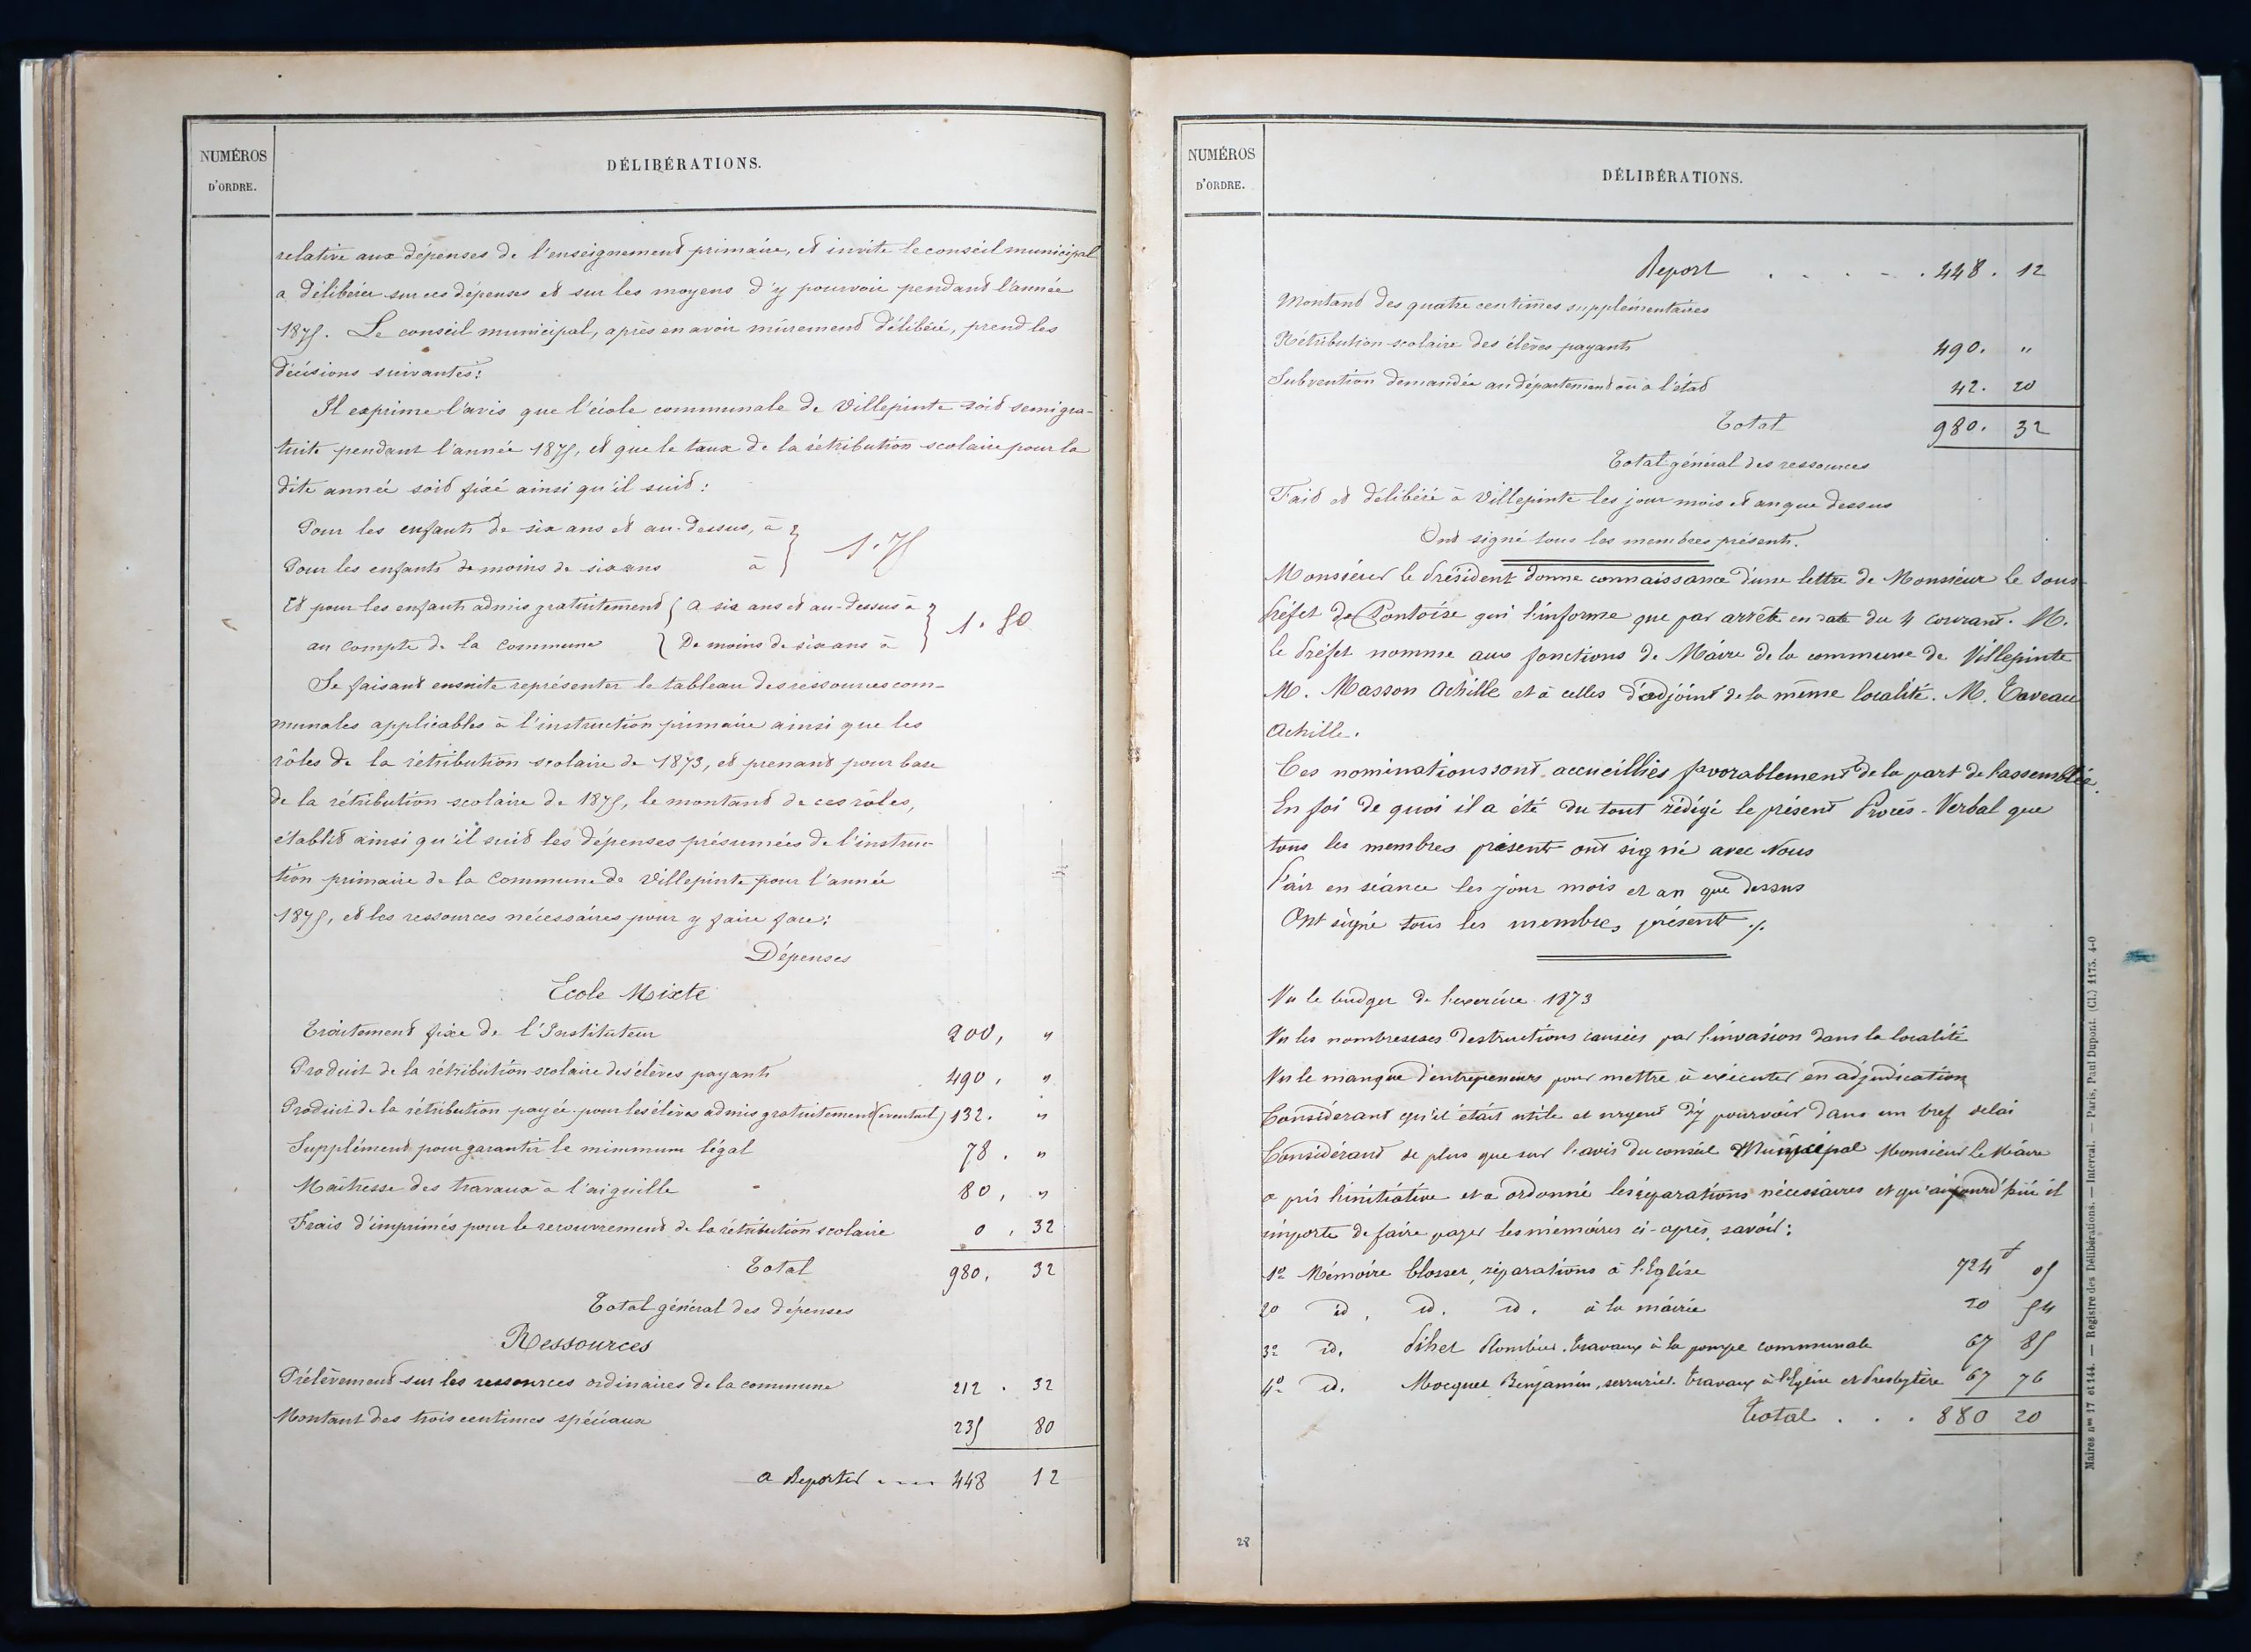 NUMÉROS
D'ORDRE.
DÉLIBÉRATIONS.
relative aux dépenses de l'enseignement primaire, et invite le conseil municipal
a délibérer sur ces dépenses et sur les moyens d'y pourvoir pendant l'année
1875. Le conseil municipal, après en avoir mûrement délibéré, prend les
décisions suivantes:
Il exprime l'avis que l'école communale de Villepinte soit semi gra-
tuite pendant l'année 1875, et que le taux de la rétribution scolaire pour la
dite année soit fixé ainsi qu'il suit:
Pour les enfants de six ans et au-dessus, à } 1.75
Pour les enfants de moins de six ans à
Et pour les enfants admis gratuitement { a six ans et au-dessus à } 1.50
au compte de la commune { De moins de six ans à
Se faisant ensuite représenter le tableau des ressources com-
munales applicables à l'instruction primaire ainsi que les
rôles de la rétribution scolaire de 1873, et prenant pour base
de la rétribution scolaire de 1875, le montant de ces rôles,
établit ainsi qu'il suit les dépenses présumées de l'instruc-
tion primaire de la Commune de Villepinte pour l'année
1875, et les ressources nécessaires pour y faire face:
Dépenses
Ecole Mixte
Traitement fixe de l'Instituteur 200, "
Produit de la rétribution scolaire des élèves payants 490, "
Produit de la rétribution payée pour les élèves admis gratuitement (eventuel) 132. "
Supplément pour garantir le minimum légal 78. "
Maîtresse des travaux à l'aiguille 80, "
Frais d'imprimés pour le recouvrement de la rétribution scolaire 0, 32
Total 980, 32
Total général des dépenses
Ressources
Prélèvement sur les ressources ordinaires de la commune 212. 32
Montant des trois centimes spéciaux 235 80
a Reporter .... 448 12
NUMÉROS
D'ORDRE.
DÉLIBÉRATIONS.
Report . . . . . 448. 12
Montant des quatre centimes supplémentaires
Rétribution scolaire des élèves payants 490. "
Subvention demandée au département ou à l'état 42. 20
Total 980. 32
Total général des ressources
Fait et délibéré à Villepinte les jour mois et an que dessus
Ont signé tous les membres présents.
Monsieur le Président donne connaissance d'une lettre de Monsieur le Sous-
Préfet de Pontoise qui l'informe que par arrêté en date du 4 courant. M.
le Préfet nomme aux fonctions de Maire de la commune de Villepinte
M. Masson Achille et à celles d'adjoint de la même localité. M. Taveau
Achille.
Ces nominations sont accueillies favorablement de la part de l'assemblée.
En foi de quoi il a été du tout rédigé le présent Procès-Verbal que
tous les membres présents ont signé avec Nous
Fait en séance les jour mois et an que dessus
Ont signé tous les membres présents ./.
Vu le budget de l'exercice 1873
Vu les nombreuses destructions causées par l'invasion dans la localité
Vu le manque d'entrepreneurs pour mettre à exécuter en adjudication
Considérant qu'il était utile et urgent d'y pourvoir dans un bref delai
Considérant de plus que sur l'avis du conseil Municipal Monsieur le Maire
a pris l'initiative et a ordonné les réparations nécessaires et qu'aujourd'hui il
importe de faire payer les mémoires ci-après, savoir:
1º Mémoire Closser, réparations à l'Eglise 724f 05
20 id. id. id. à la mairie 20 54
3º id. Pihet Plombier, travaux à la pompe communale 67 85
4º id. Mocquet Benjamin, serrurier. travaux à l'Eglise et Presbytère 67 76
Total . . . 880 20
28
Maires nos 17 et 144. — Registre des Délibérations. — Intercal. — Paris, Paul Dupont. (Cl.) 1175. 4-0